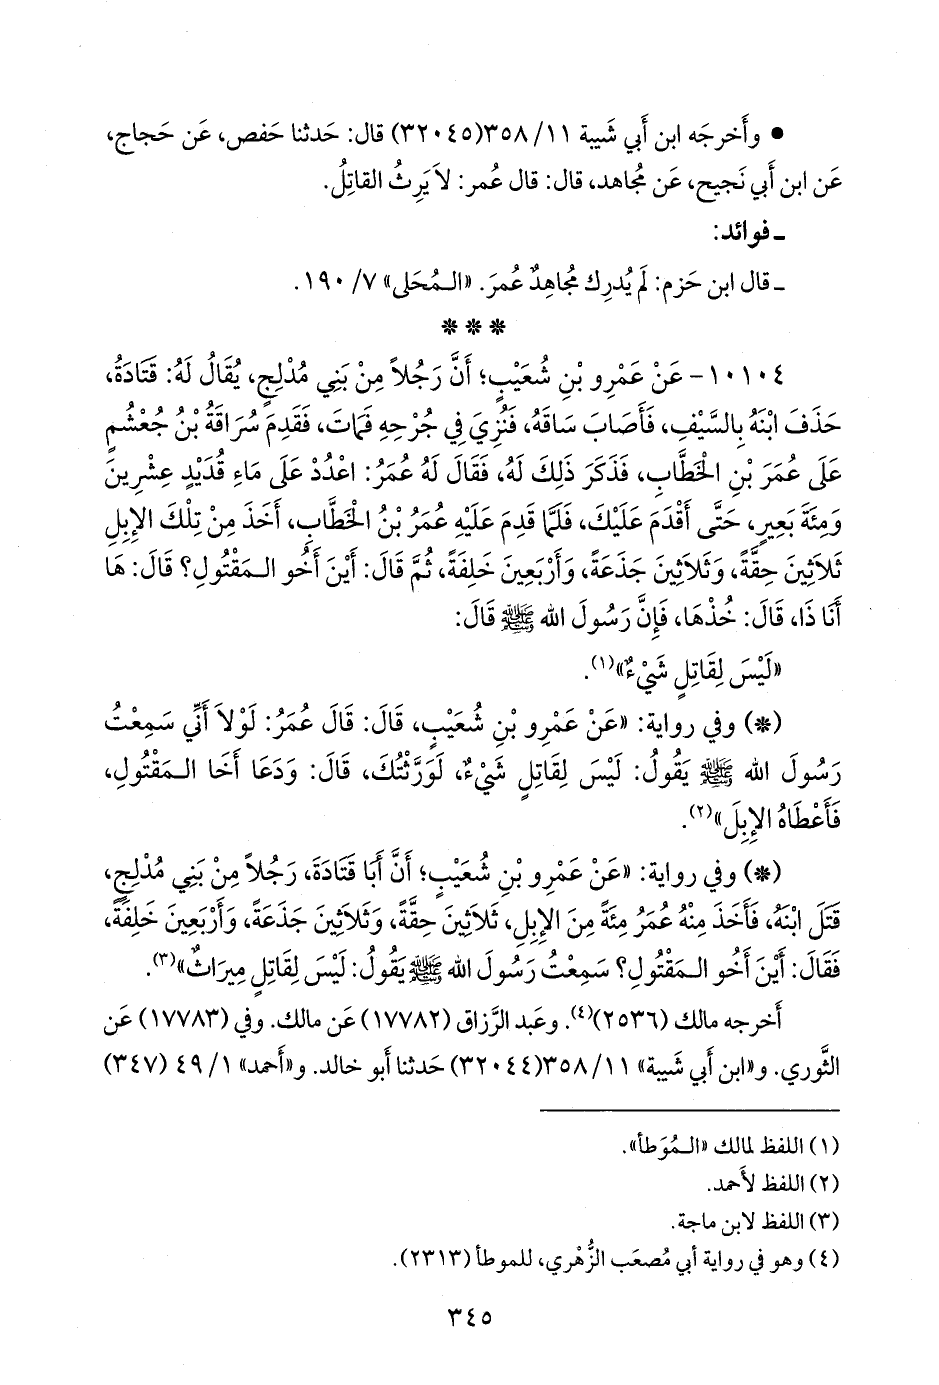 • وأَخرجَه ابن أَبي شَيبة ١١/ ٣٥٨(٣٢٠٤٥) قال: حَدثنا حَفص، عَن حَجاج،
عَن ابن أَبي نَجيح، عَن مُجاهد، قال: قال عُمر: لاَ يَرِثُ القاتِلُ.
ـ فوائد:
ـ قال ابن حَزم: لَم يُدرِك مُجاهِدٌ عُمرَ. «الـمُحَلى» ٧/ ١٩٠.
* * *
١٠١٠٤- عَنْ عَمْرِو بْنِ شُعَيْبٍ؛ أَنَّ رَجُلاً مِنْ بَنِي مُدْلِجٍ، يُقَالُ لَهُ: قَتَادَةُ،
حَذَفَ ابْنَهُ بِالسَّيْفِ، فَأَصَابَ سَاقَهُ، فَنُزِيَ فِي جُرْحِهِ فَمَاتَ، فَقَدِمَ سُرَاقَةُ بْنُ جُعْشُمٍ
عَلَى عُمَرَ بْنِ الْخَطَّابِ، فَذَكَرَ ذَلِكَ لَهُ، فَقَالَ لَهُ عُمَرُ: اعْدُدْ عَلَى مَاءِ قُدَيْدٍ عِشْرِينَ
وَمِئَةَ بَعِيرٍ، حَتَّى أَقْدَمَ عَلَيْكَ، فَلَمَّا قَدِمَ عَلَيْهِ عُمَرُ بْنُ الْخَطَّابِ، أَخَذَ مِنْ تِلْكَ الإِبِلِ
ثَلاَثِينَ حِقَّةً، وَثَلاَثِينَ جَذَعَةً، وَأَرْبَعِينَ خَلِفَةً، ثُمَّ قَالَ: أَيْنَ أَخُو الـمَقْتُولِ؟ قَالَ: هَا
أَنَا ذَا، قَالَ: خُذْهَا، فَإِنَّ رَسُولَ الله ﷺ قَالَ:
«لَيْسَ لِقَاتِلٍ شَيْءٌ»(١).
(*) وفي رواية: «عَنْ عَمْرِو بْنِ شُعَيْبٍ، قَالَ: قَالَ عُمَرُ: لَوْلاَ أَنِّي سَمِعْتُ
رَسُولَ الله ﷺ يَقُولُ: لَيْسَ لِقَاتِلٍ شَيْءٌ، لَوَرَّثْتُكَ، قَالَ: وَدَعَا أَخَا الـمَقْتُولِ،
فَأَعْطَاهُ الإِبِلَ»(٢).
(*) وفي رواية: «عَنْ عَمْرِو بْنِ شُعَيْبٍ؛ أَنَّ أَبَا قَتَادَةَ، رَجُلاً مِنْ بَنِي مُدْلِجٍ،
قَتَلَ ابْنَهُ، فَأَخَذَ مِنْهُ عُمَرُ مِئَةً مِنَ الإِبِلِ، ثَلاَثِينَ حِقَّةً، وَثَلاَثِينَ جَذَعَةً، وَأَرْبَعِينَ خَلِفَةً،
فَقَالَ: أَيْنَ أَخُو الـمَقْتُولِ؟ سَمِعْتُ رَسُولَ الله ﷺ يَقُولُ: لَيْسَ لِقَاتِلٍ مِيرَاثٌ»(٣).
أَخرجه مالك (٢٥٣٦)(٤). وعَبد الرَّزاق (١٧٧٨٢) عَن مالك. وفي (١٧٧٨٣) عَن
الثَّوري. و«ابن أَبي شَيبة» ١١/ ٣٥٨(٣٢٠٤٤) حَدثنا أَبو خالد. و«أَحمد» ١/ ٤٩ (٣٤٧)
(١) اللفظ لمالك «الـمُوَطأ».
(٢) اللفظ لأَحمد.
(٣) اللفظ لابن ماجة.
(٤) وهو في رواية أَبي مُصعَب الزُّهْري، للموطأ (٢٣١٣).
٣٤٥